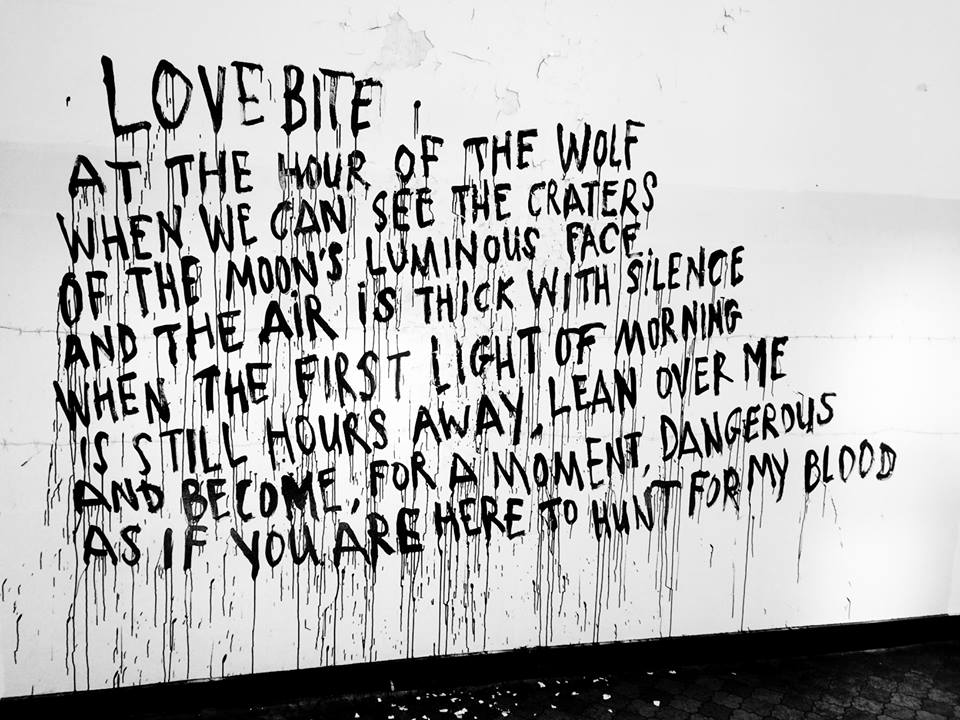 LOVE BITE
AT THE HOUR OF THE WOLF
WHEN WE CAN SEE THE CRATERS
OF THE MOON'S LUMINOUS FACE
AND THE AIR IS THICK WITH SILENCE
WHEN THE FIRST LIGHT OF MORNING
IS STILL HOURS AWAY, LEAN OVER ME
AND BECOME, FOR A MOMENT, DANGEROUS
AS IF YOU ARE HERE TO HUNT FOR MY BLOOD